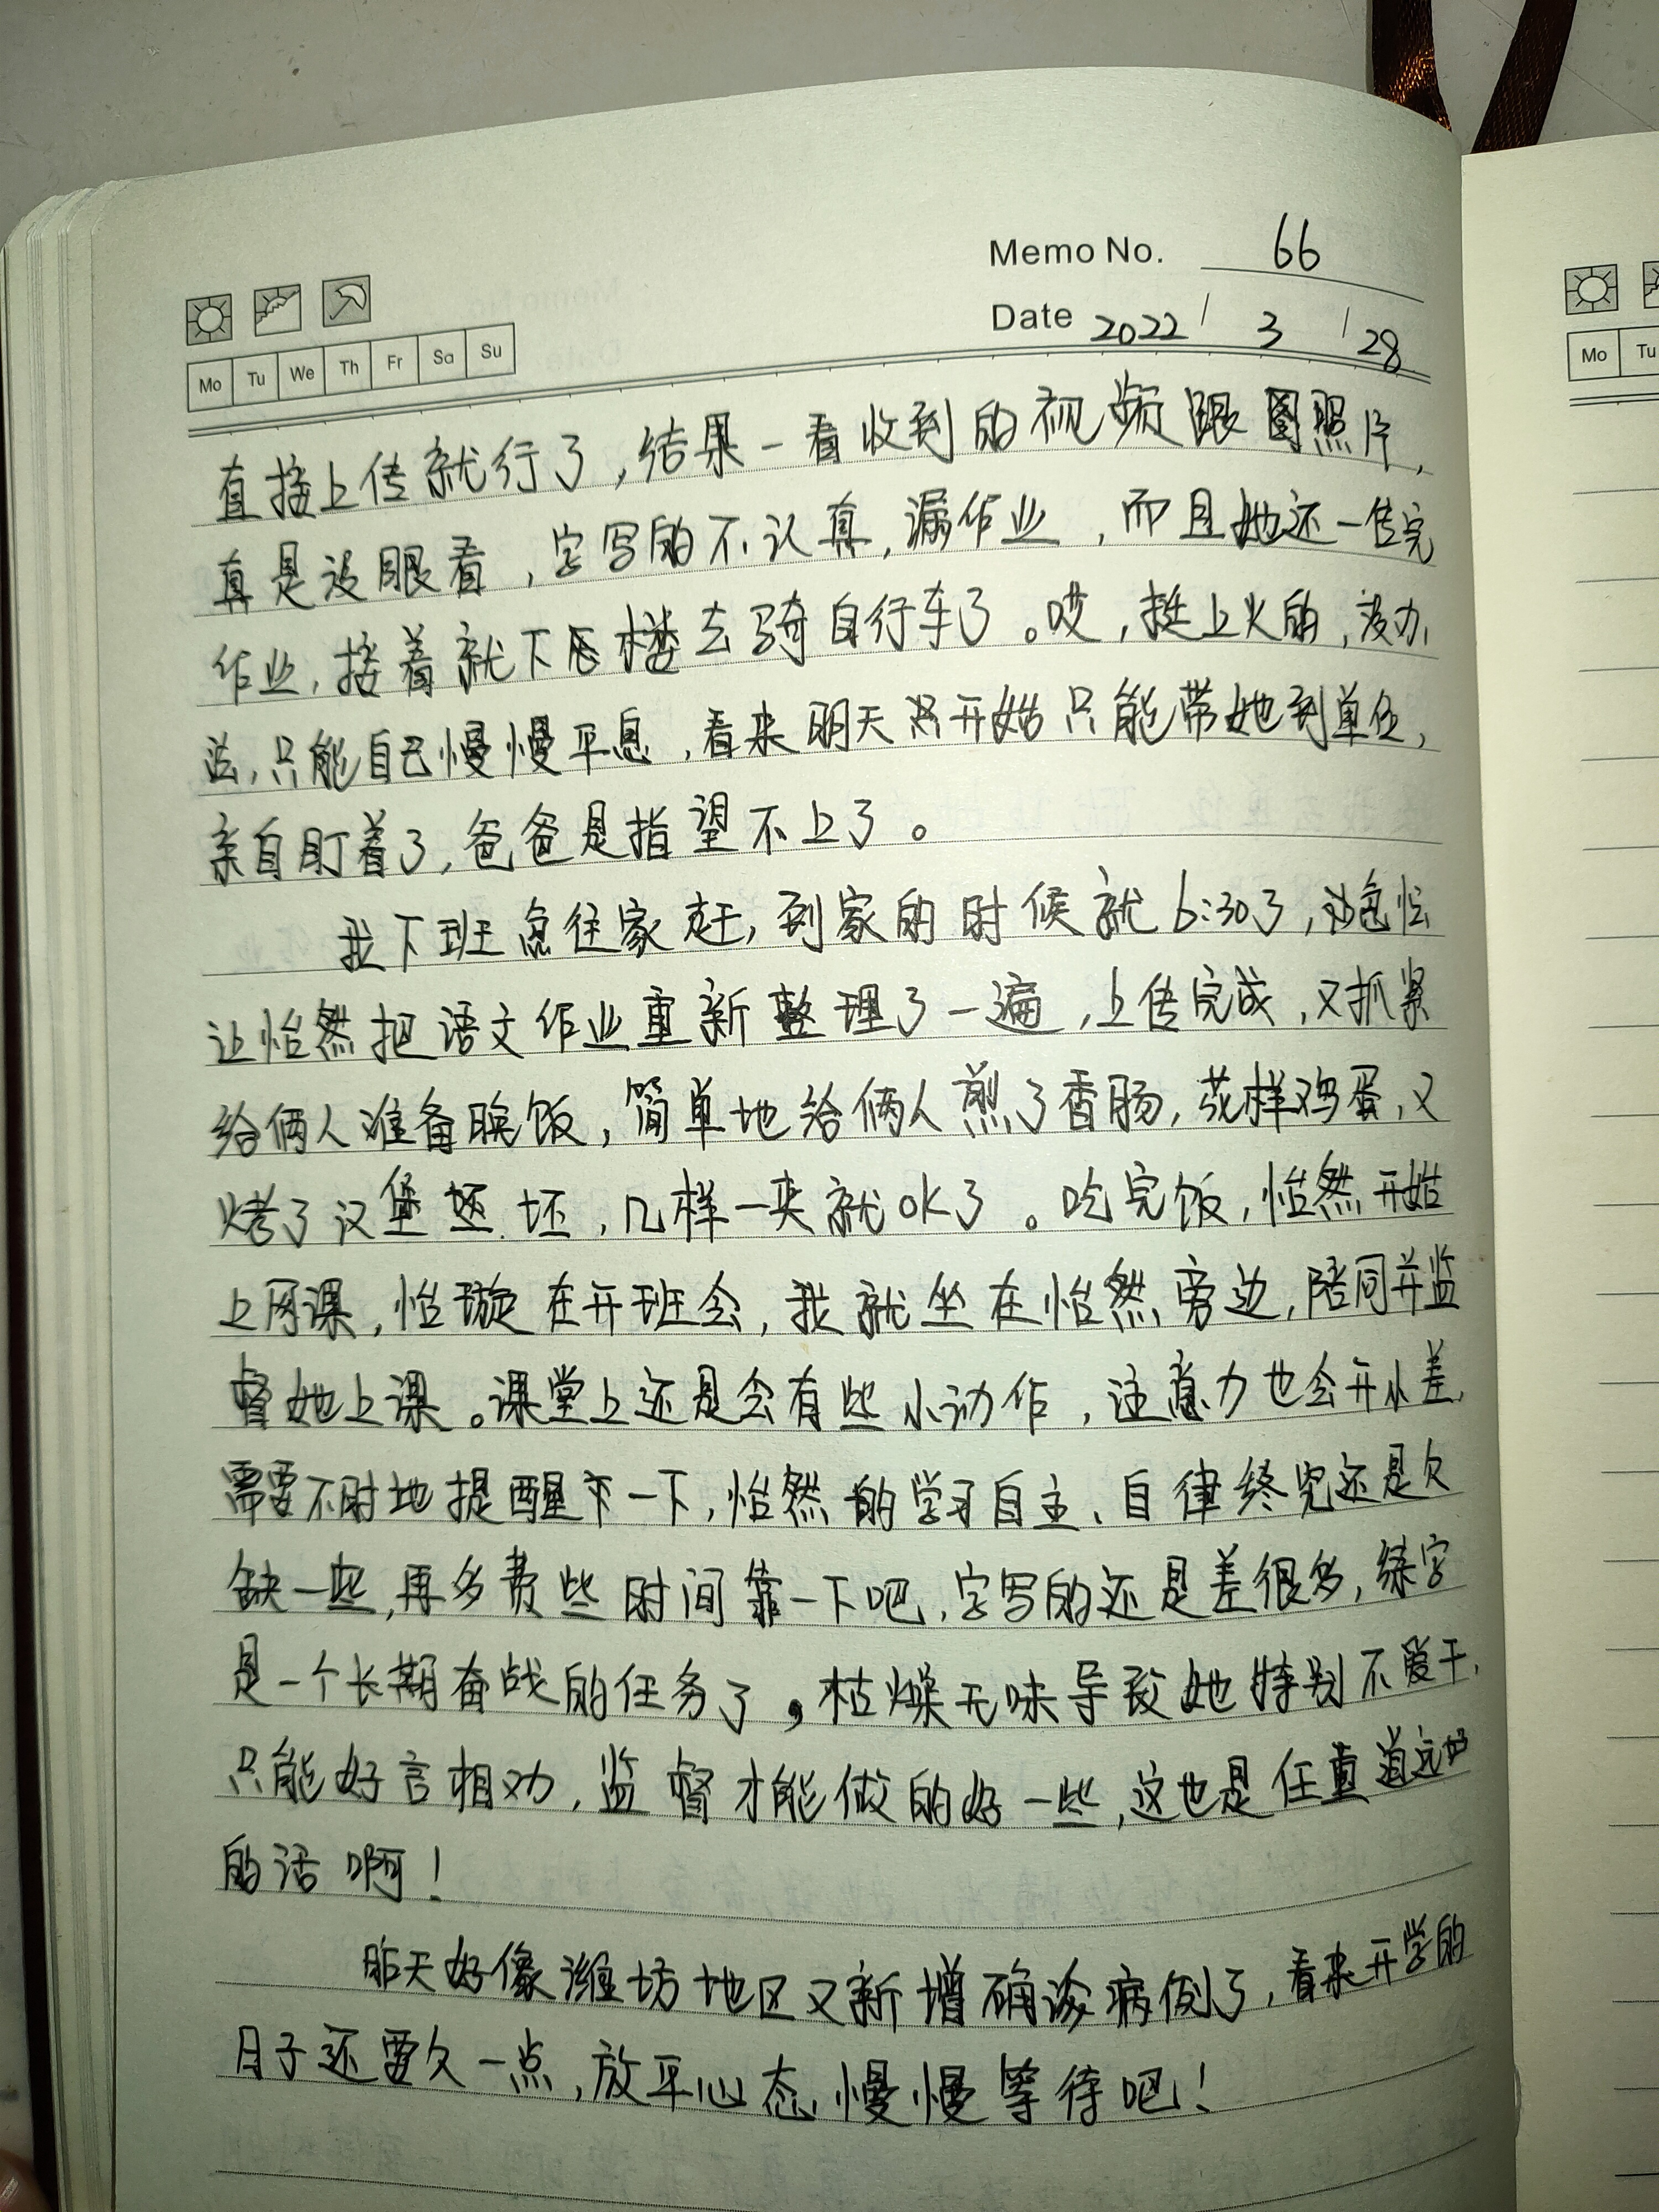 Memo No. 66
Date 2022 / 3 / 28
Mo Tu We Th Fr Sa Su
直接上传就行了，结果一看收到的视频跟图照片，
真是没眼看，字写的不认真，漏作业，而且她还一传完
作业，接着就下楼去骑自行车了。哎，挺上火的，没办
法，只能自己慢慢平息，看来明天开始只能带她到单位，
亲自盯着了，爸爸是指望不上了。
我下班急往家赶，到家的时候就6:30了，急忙
让怡然把语文作业重新整理了一遍，上传完成，又抓紧
给俩人准备晚饭，简单地给俩人煎了香肠，荷样鸡蛋，又
烤了汉堡坯，几样一夹就OK了。吃完饭，怡然开始
上网课，怡璇在开班会，我就坐在怡然旁边，陪同并监
督她上课。课堂上还是会有些小动作，注意力也会开小差，
需要不时地提醒一下，怡然的学习自主、自律终究还是欠
缺一些，再多费些时间靠一下吧，字写的还是差很多，练字
是一个长期奋战的任务了，枯燥无味导致她特别不爱干，
只能好言相劝，监督才能做的好一些，这也是任重道远
的活啊！
昨天好像潍坊地区又新增确诊病例了，看来开学的
日子还要久一点，放平心态，慢慢等待吧！
Mo Tu